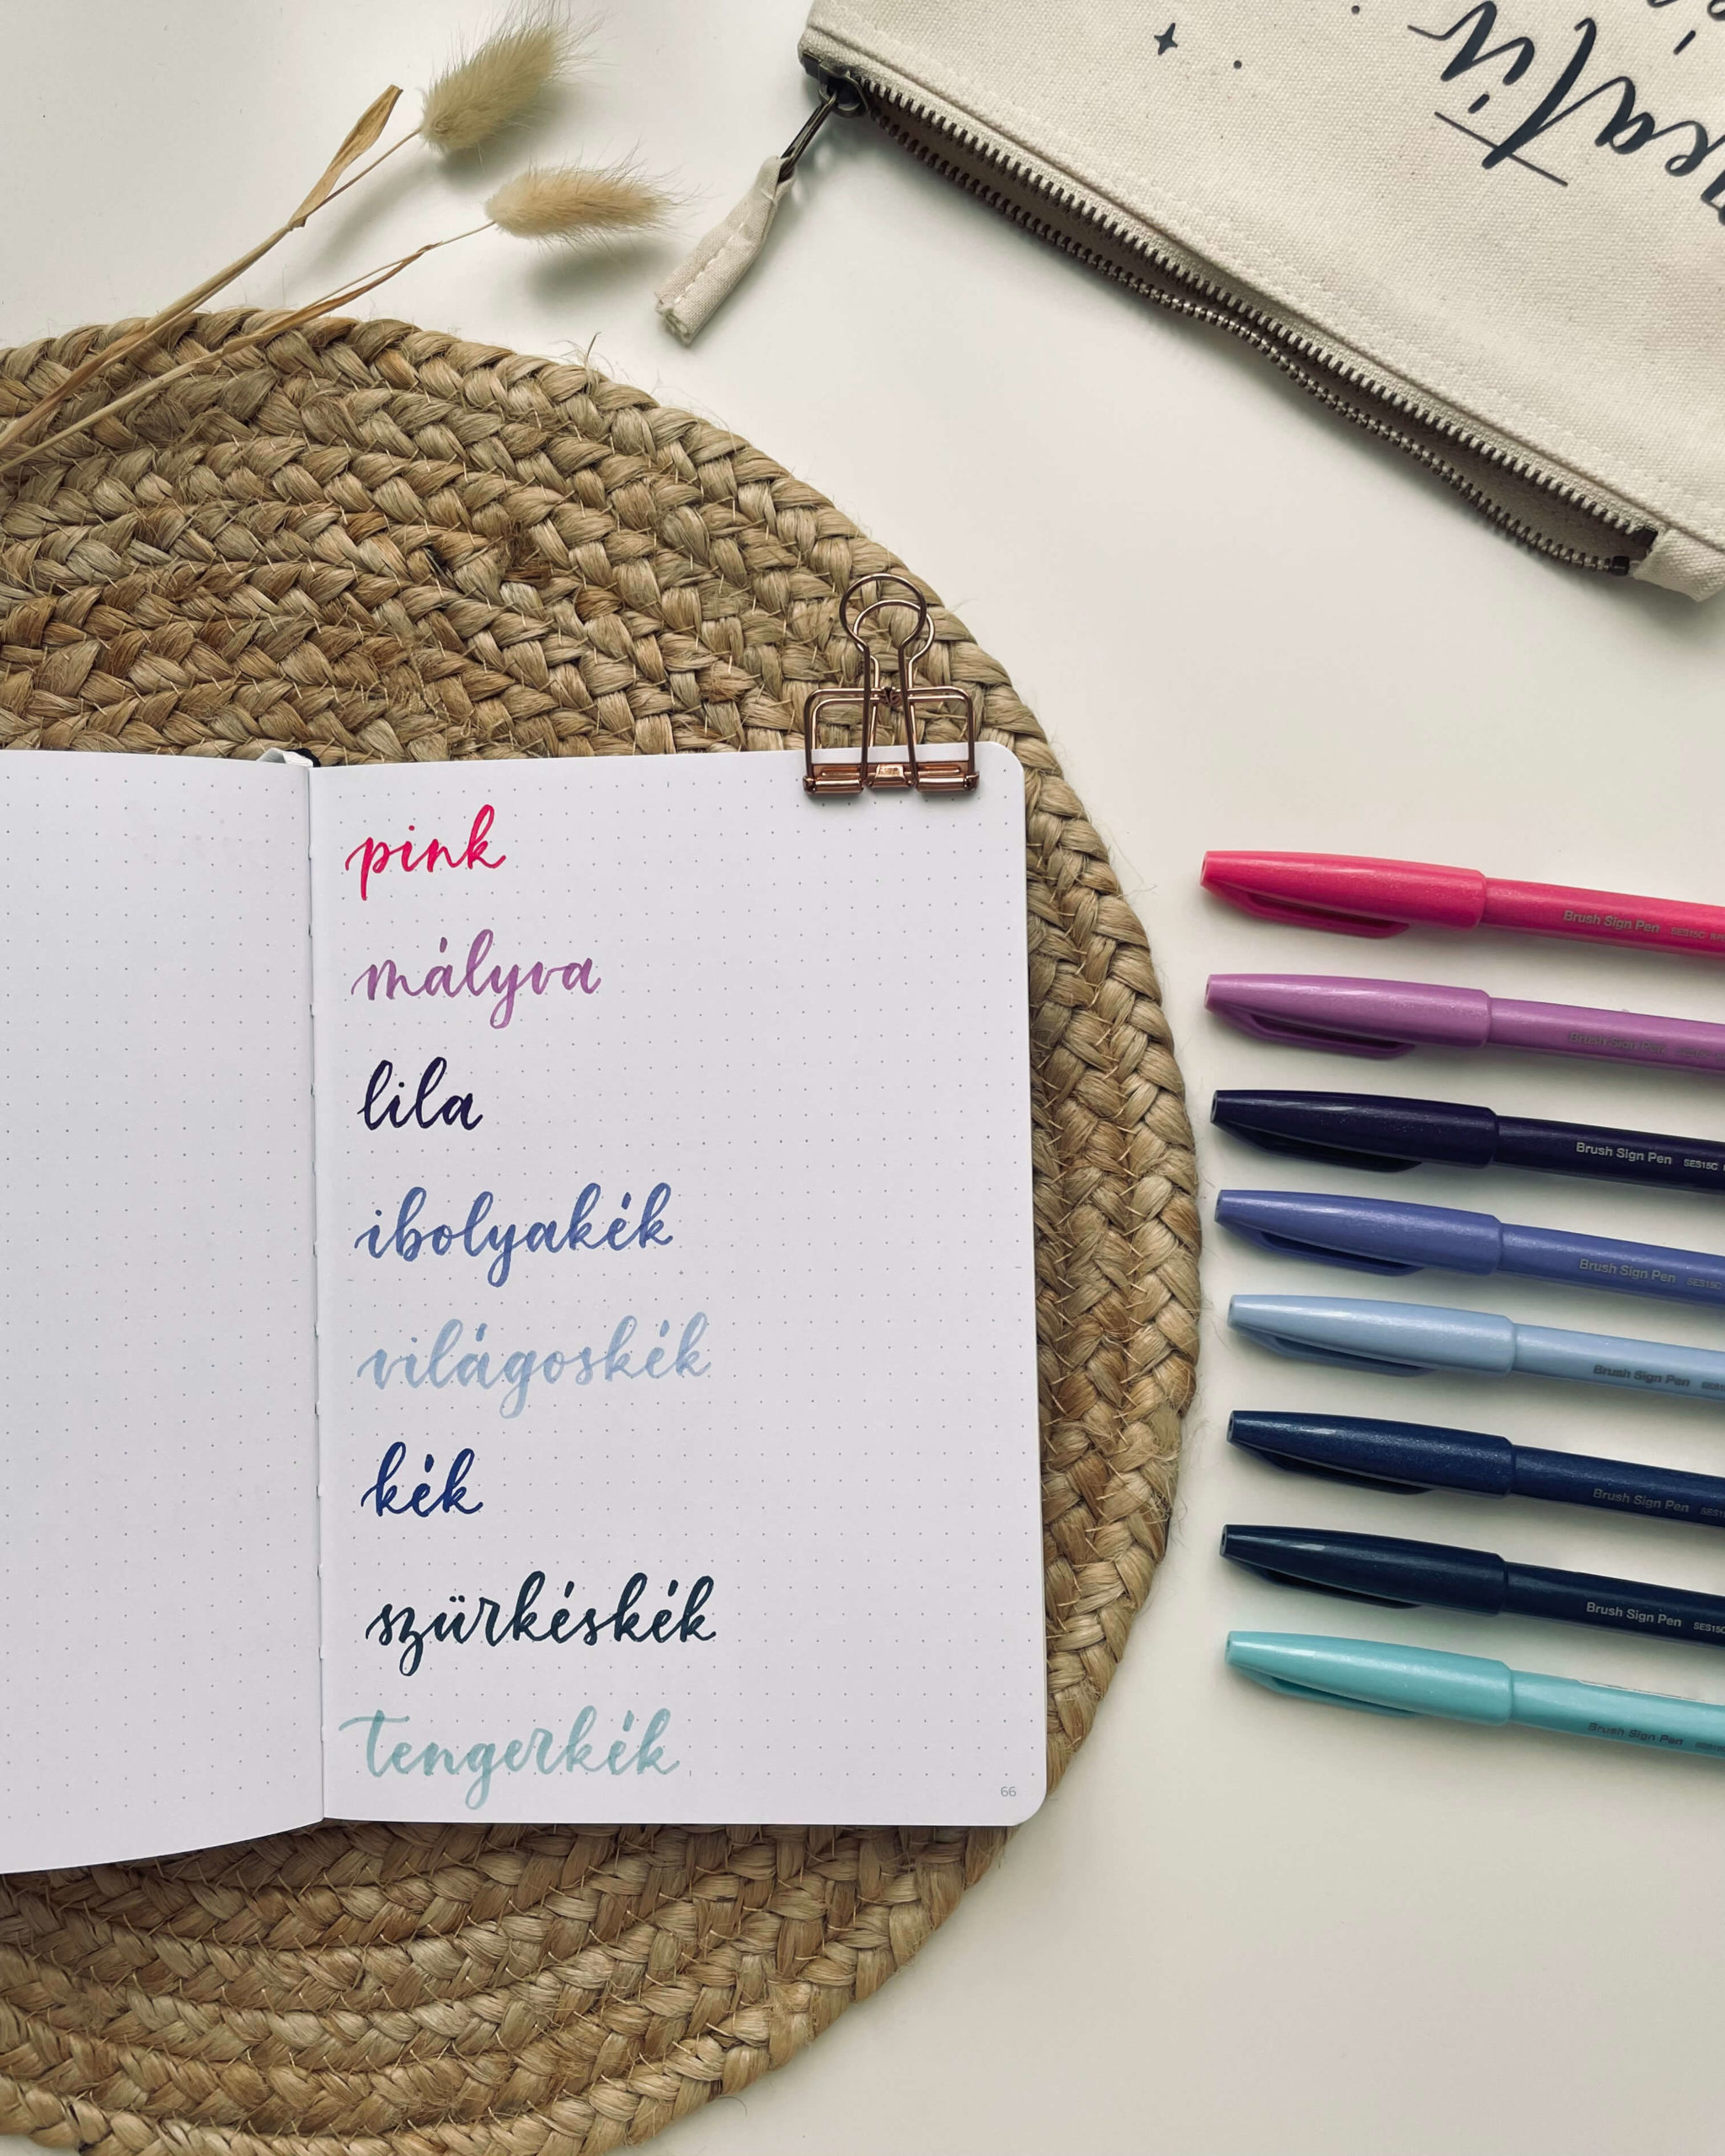 pink
mályva
lila
ibolyakék
világoskék
kék
szürkéskék
tengerkék
66
Brush Sign Pen SES15C
Brush Sign Pen
Brush Sign Pen SES15C
Brush Sign Pen SES15C
Brush Sign Pen
Brush Sign Pen
Brush Sign Pen SES15C
Brush Sign Pen